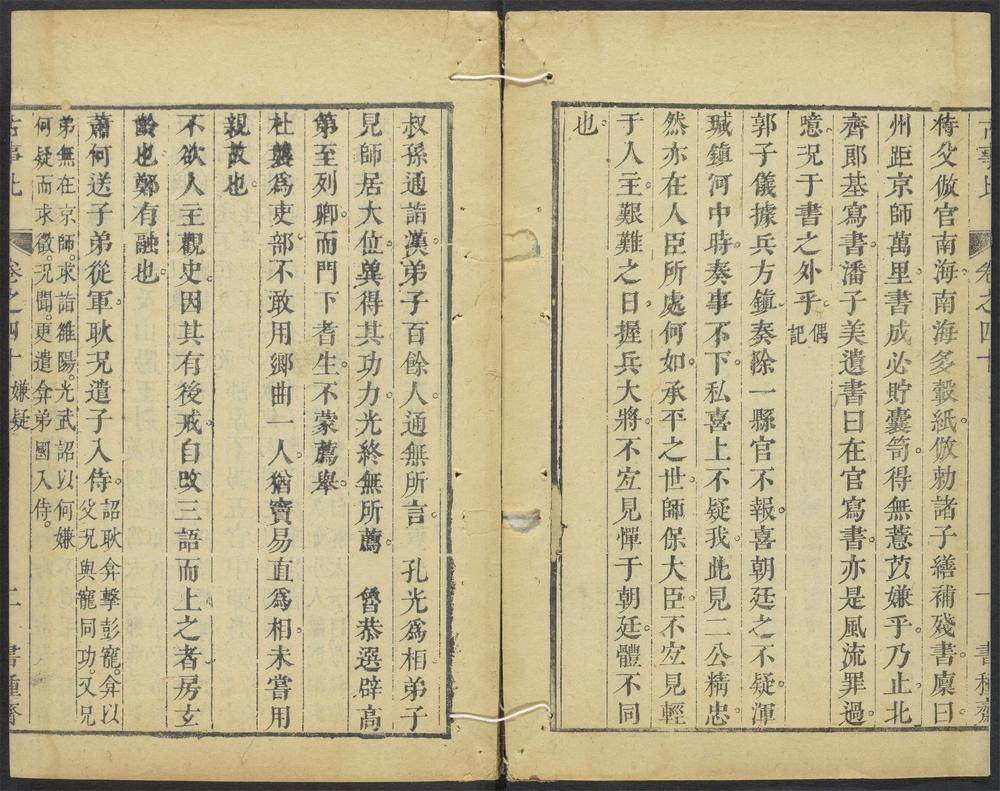 卷之四十 一 書種齋
父倣官南海南海多穀紙倣勅諸子繕補殘書廩曰
州距京師萬里書成必貯囊笥得無薏苡嫌乎乃止北
齊郎基寫書潘子美遺書曰在官寫書亦是風流罪過
況于書之外乎偶記
郭子儀據兵方鎮奏除一縣官不報喜朝廷之不疑渾
瑊鎮河中時奏事不下私喜上不疑我此見二公精忠
然亦在人臣所處何如承平之世師保大臣不宐見輕
于人主艱難之日握兵大將不宐見憚于朝廷體不同
也
叔孫通詣漢弟子百餘人通無所言 孔光爲相弟子
見師居大位兾得其功力光終無所薦 魯恭選辟高
第至列卿而門下耆生不蒙薦舉
杜襲爲吏部不敢用鄉曲一人猶賣易直爲相未嘗用
親故也
不欲人主觀史因其有後戒自改三語而上之者房玄
齡也鄭有融也
蕭何送子弟從軍耿況遣子入侍詔耿弇擊彭寵弇以
父況與寵同功又兄
弟無在京師求詣雒陽光武詔以何嫌
何疑而求徵況聞更遣弇弟國入侍
卷之四十 嫌疑 二 書種齋